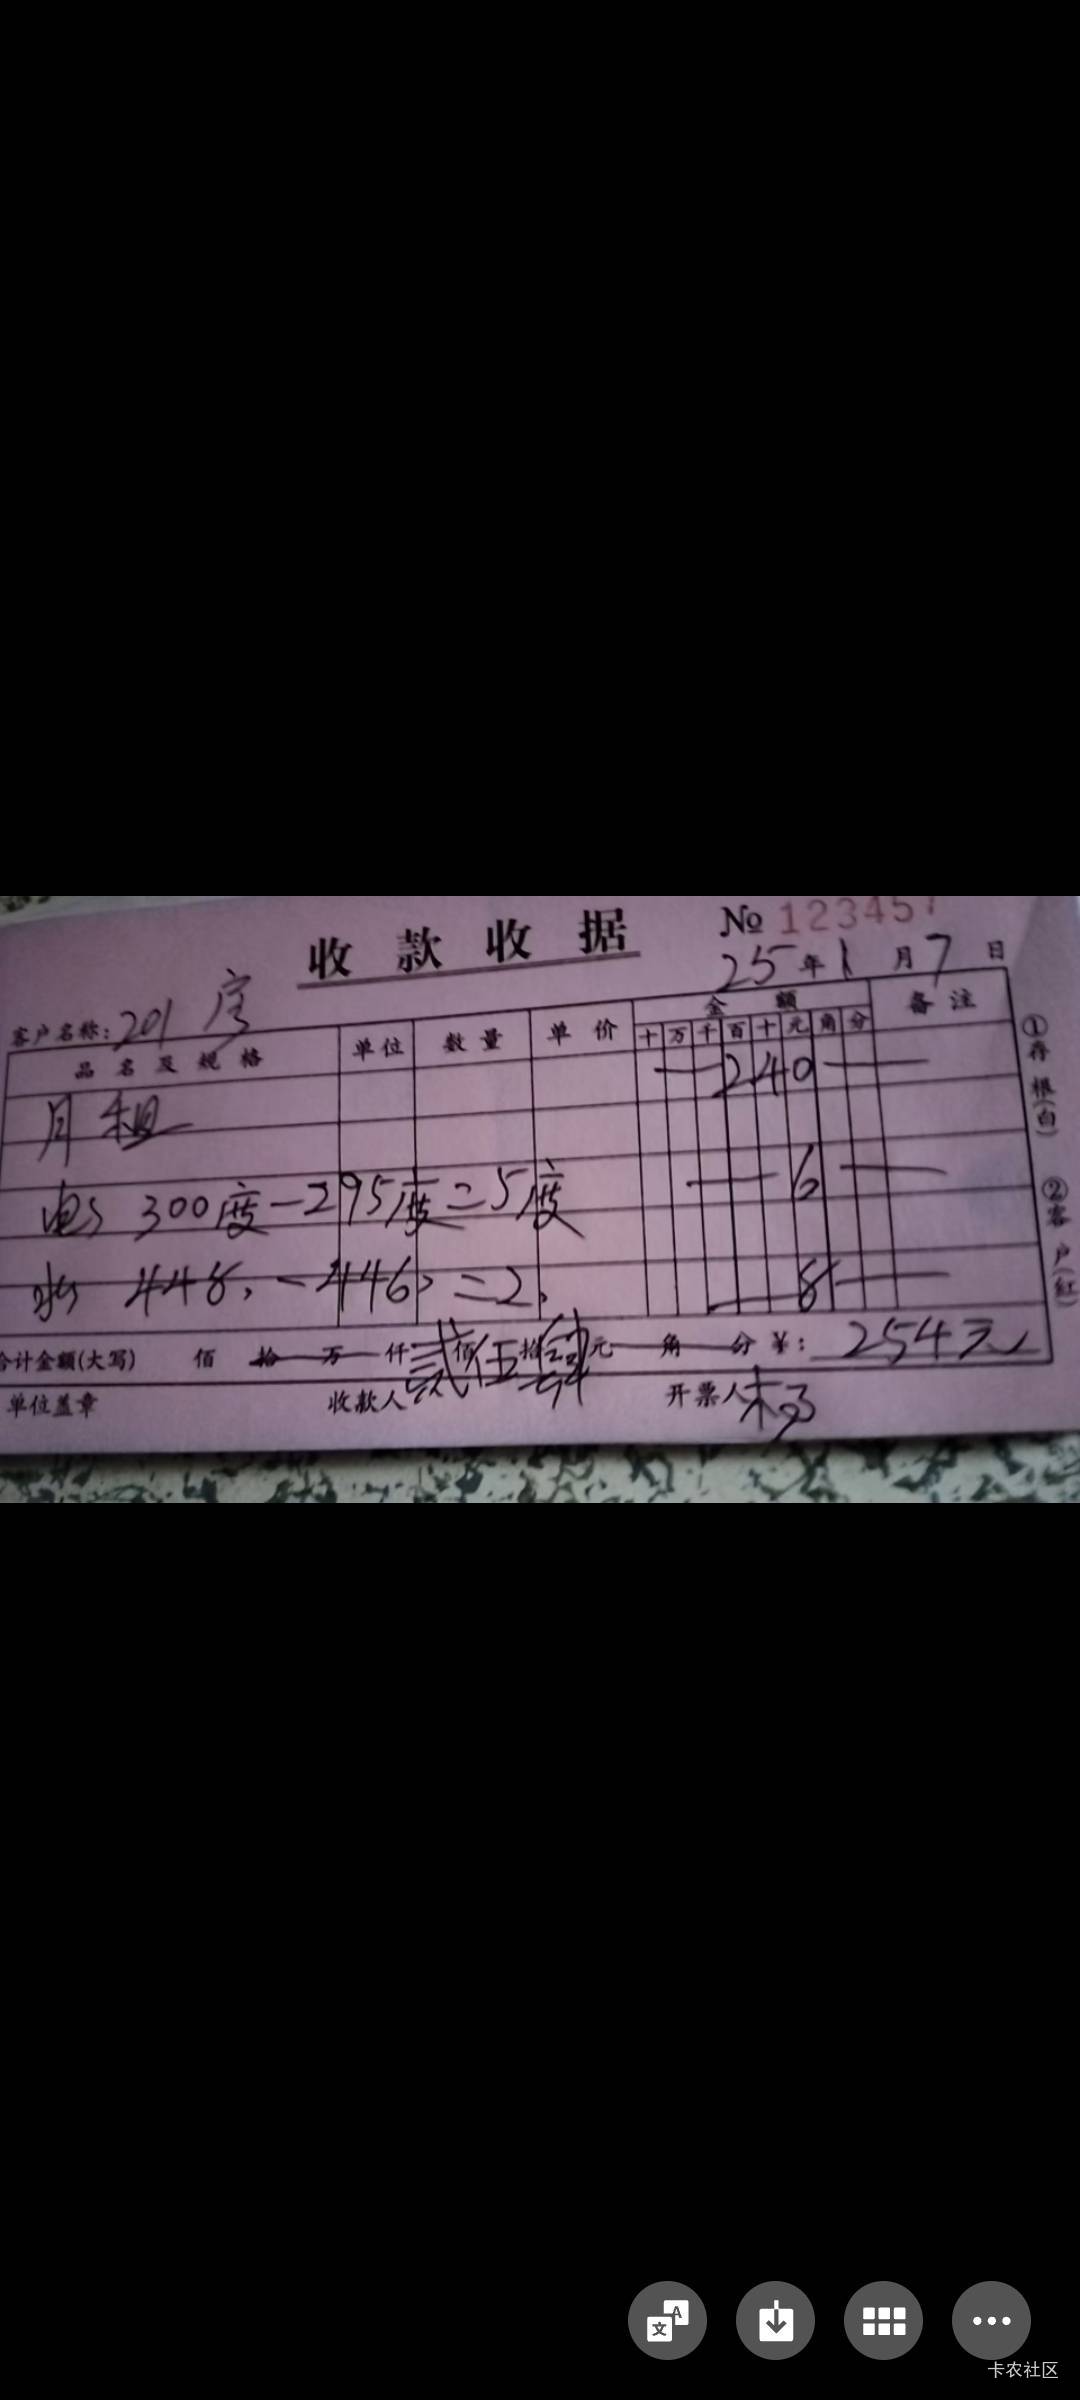 收款收据
№ 1234567
25年1月7日
客户名称:201房
品名及规格 单位 数量 单价 金额 备注
十 万 千 百 十 元 角 分
月租 240
电 300度-295度=5度 6
水 448-446=2 8
合计金额(大写) 佰拾万仟贰佰伍拾肆元角分¥:254元
单位盖章 收款人 开票人
①存根(白) ②客户(红)
卡农社区